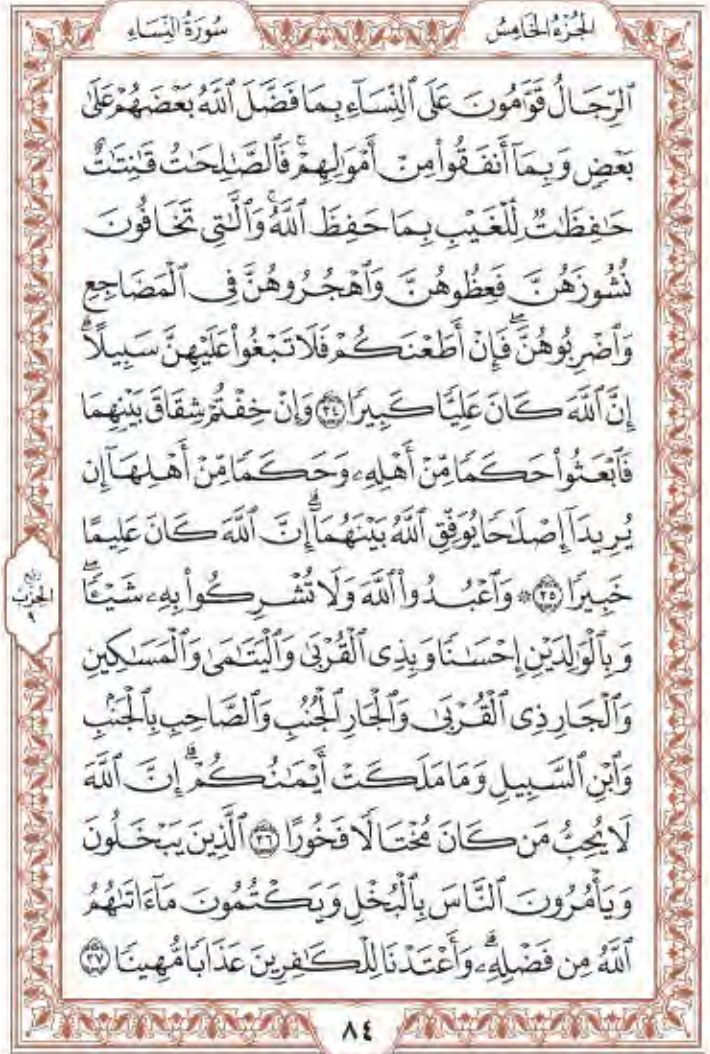 سُورَةُ النِّسَاءِ
الجُزْءُ الخَامِسُ
ٱلرِّجَالُ قَوَّٰمُونَ عَلَى ٱلنِّسَآءِ بِمَا فَضَّلَ ٱللَّهُ بَعۡضَهُمۡ عَلَىٰ
بَعۡضٖ وَبِمَآ أَنفَقُواْ مِنۡ أَمۡوَٰلِهِمۡۚ فَٱلصَّٰلِحَٰتُ قَٰنِتَٰتٌ
حَٰفِظَٰتٞ لِّلۡغَيۡبِ بِمَا حَفِظَ ٱللَّهُۚ وَٱلَّٰتِي تَخَافُونَ
نُشُوزَهُنَّ فَعِظُوهُنَّ وَٱهۡجُرُوهُنَّ فِي ٱلۡمَضَاجِعِ
وَٱضۡرِبُوهُنَّۖ فَإِنۡ أَطَعۡنَكُمۡ فَلَا تَبۡغُواْ عَلَيۡهِنَّ سَبِيلًاۗ
إِنَّ ٱللَّهَ كَانَ عَلِيّٗا كَبِيرٗا ٣٤ وَإِنۡ خِفۡتُمۡ شِقَاقَ بَيۡنِهِمَا
فَٱبۡعَثُواْ حَكَمٗا مِّنۡ أَهۡلِهِۦ وَحَكَمٗا مِّنۡ أَهۡلِهَآ إِن
يُرِيدَآ إِصۡلَٰحٗا يُوَفِّقِ ٱللَّهُ بَيۡنَهُمَآۗ إِنَّ ٱللَّهَ كَانَ عَلِيمًا
خَبِيرٗا ٣٥ ۞ وَٱعۡبُدُواْ ٱللَّهَ وَلَا تُشۡرِكُواْ بِهِۦ شَيۡـٔٗاۖ
وَبِٱلۡوَٰلِدَيۡنِ إِحۡسَٰنٗا وَبِذِي ٱلۡقُرۡبَىٰ وَٱلۡيَتَٰمَىٰ وَٱلۡمَسَٰكِينِ
وَٱلۡجَارِ ذِي ٱلۡقُرۡبَىٰ وَٱلۡجَارِ ٱلۡجُنُبِ وَٱلصَّاحِبِ بِٱلۡجَنۢبِ
وَٱبۡنِ ٱلسَّبِيلِ وَمَا مَلَكَتۡ أَيۡمَٰنُكُمۡۗ إِنَّ ٱللَّهَ
لَا يُحِبُّ مَن كَانَ مُخۡتَالٗا فَخُورًا ٣٦ ٱلَّذِينَ يَبۡخَلُونَ
وَيَأۡمُرُونَ ٱلنَّاسَ بِٱلۡبُخۡلِ وَيَكۡتُمُونَ مَآ ءَاتَىٰهُمُ
ٱللَّهُ مِن فَضۡلِهِۦۗ وَأَعۡتَدۡنَا لِلۡكَٰفِرِينَ عَذَابٗا مُّهِينٗا ٣٧
ربع
الحزب
٩
٨٤